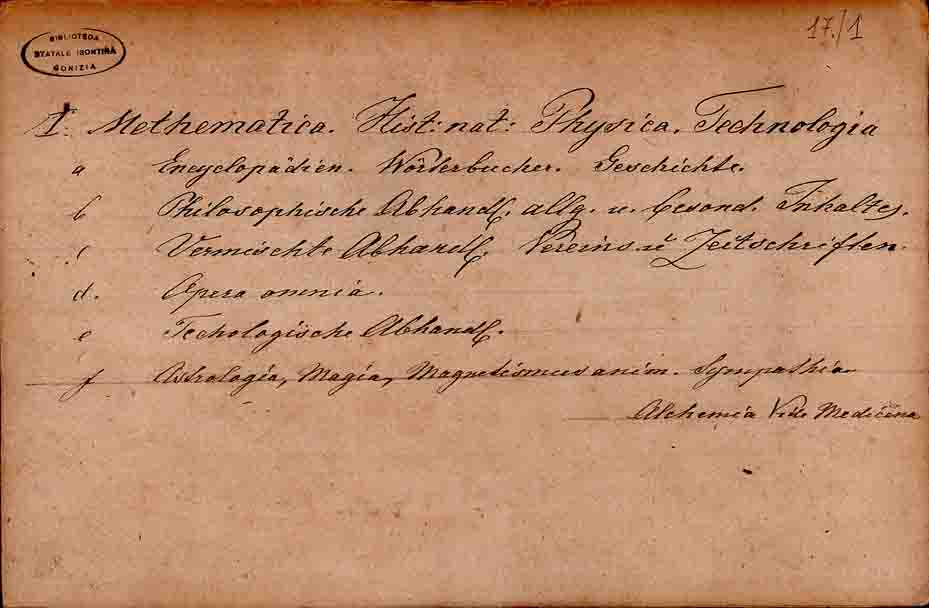 17./1
BIBLIOTECA
STATALE ISONTINA
GORIZIA
I. Methematica. Hist: nat: Physica. Technologia
a Encyclopädien. Wörterbucher. Geschichte.
b Philosophische Abhandl. allg. u. besond. Inhaltes.
c Vermischte Abhandl. Vereins u Zeitschriften.
d. Opera omnia.
e Techologische Abhandl.
f Astrologia, Magia, Magnetismus anim. Sympathia
Alchemia Vide Medicina